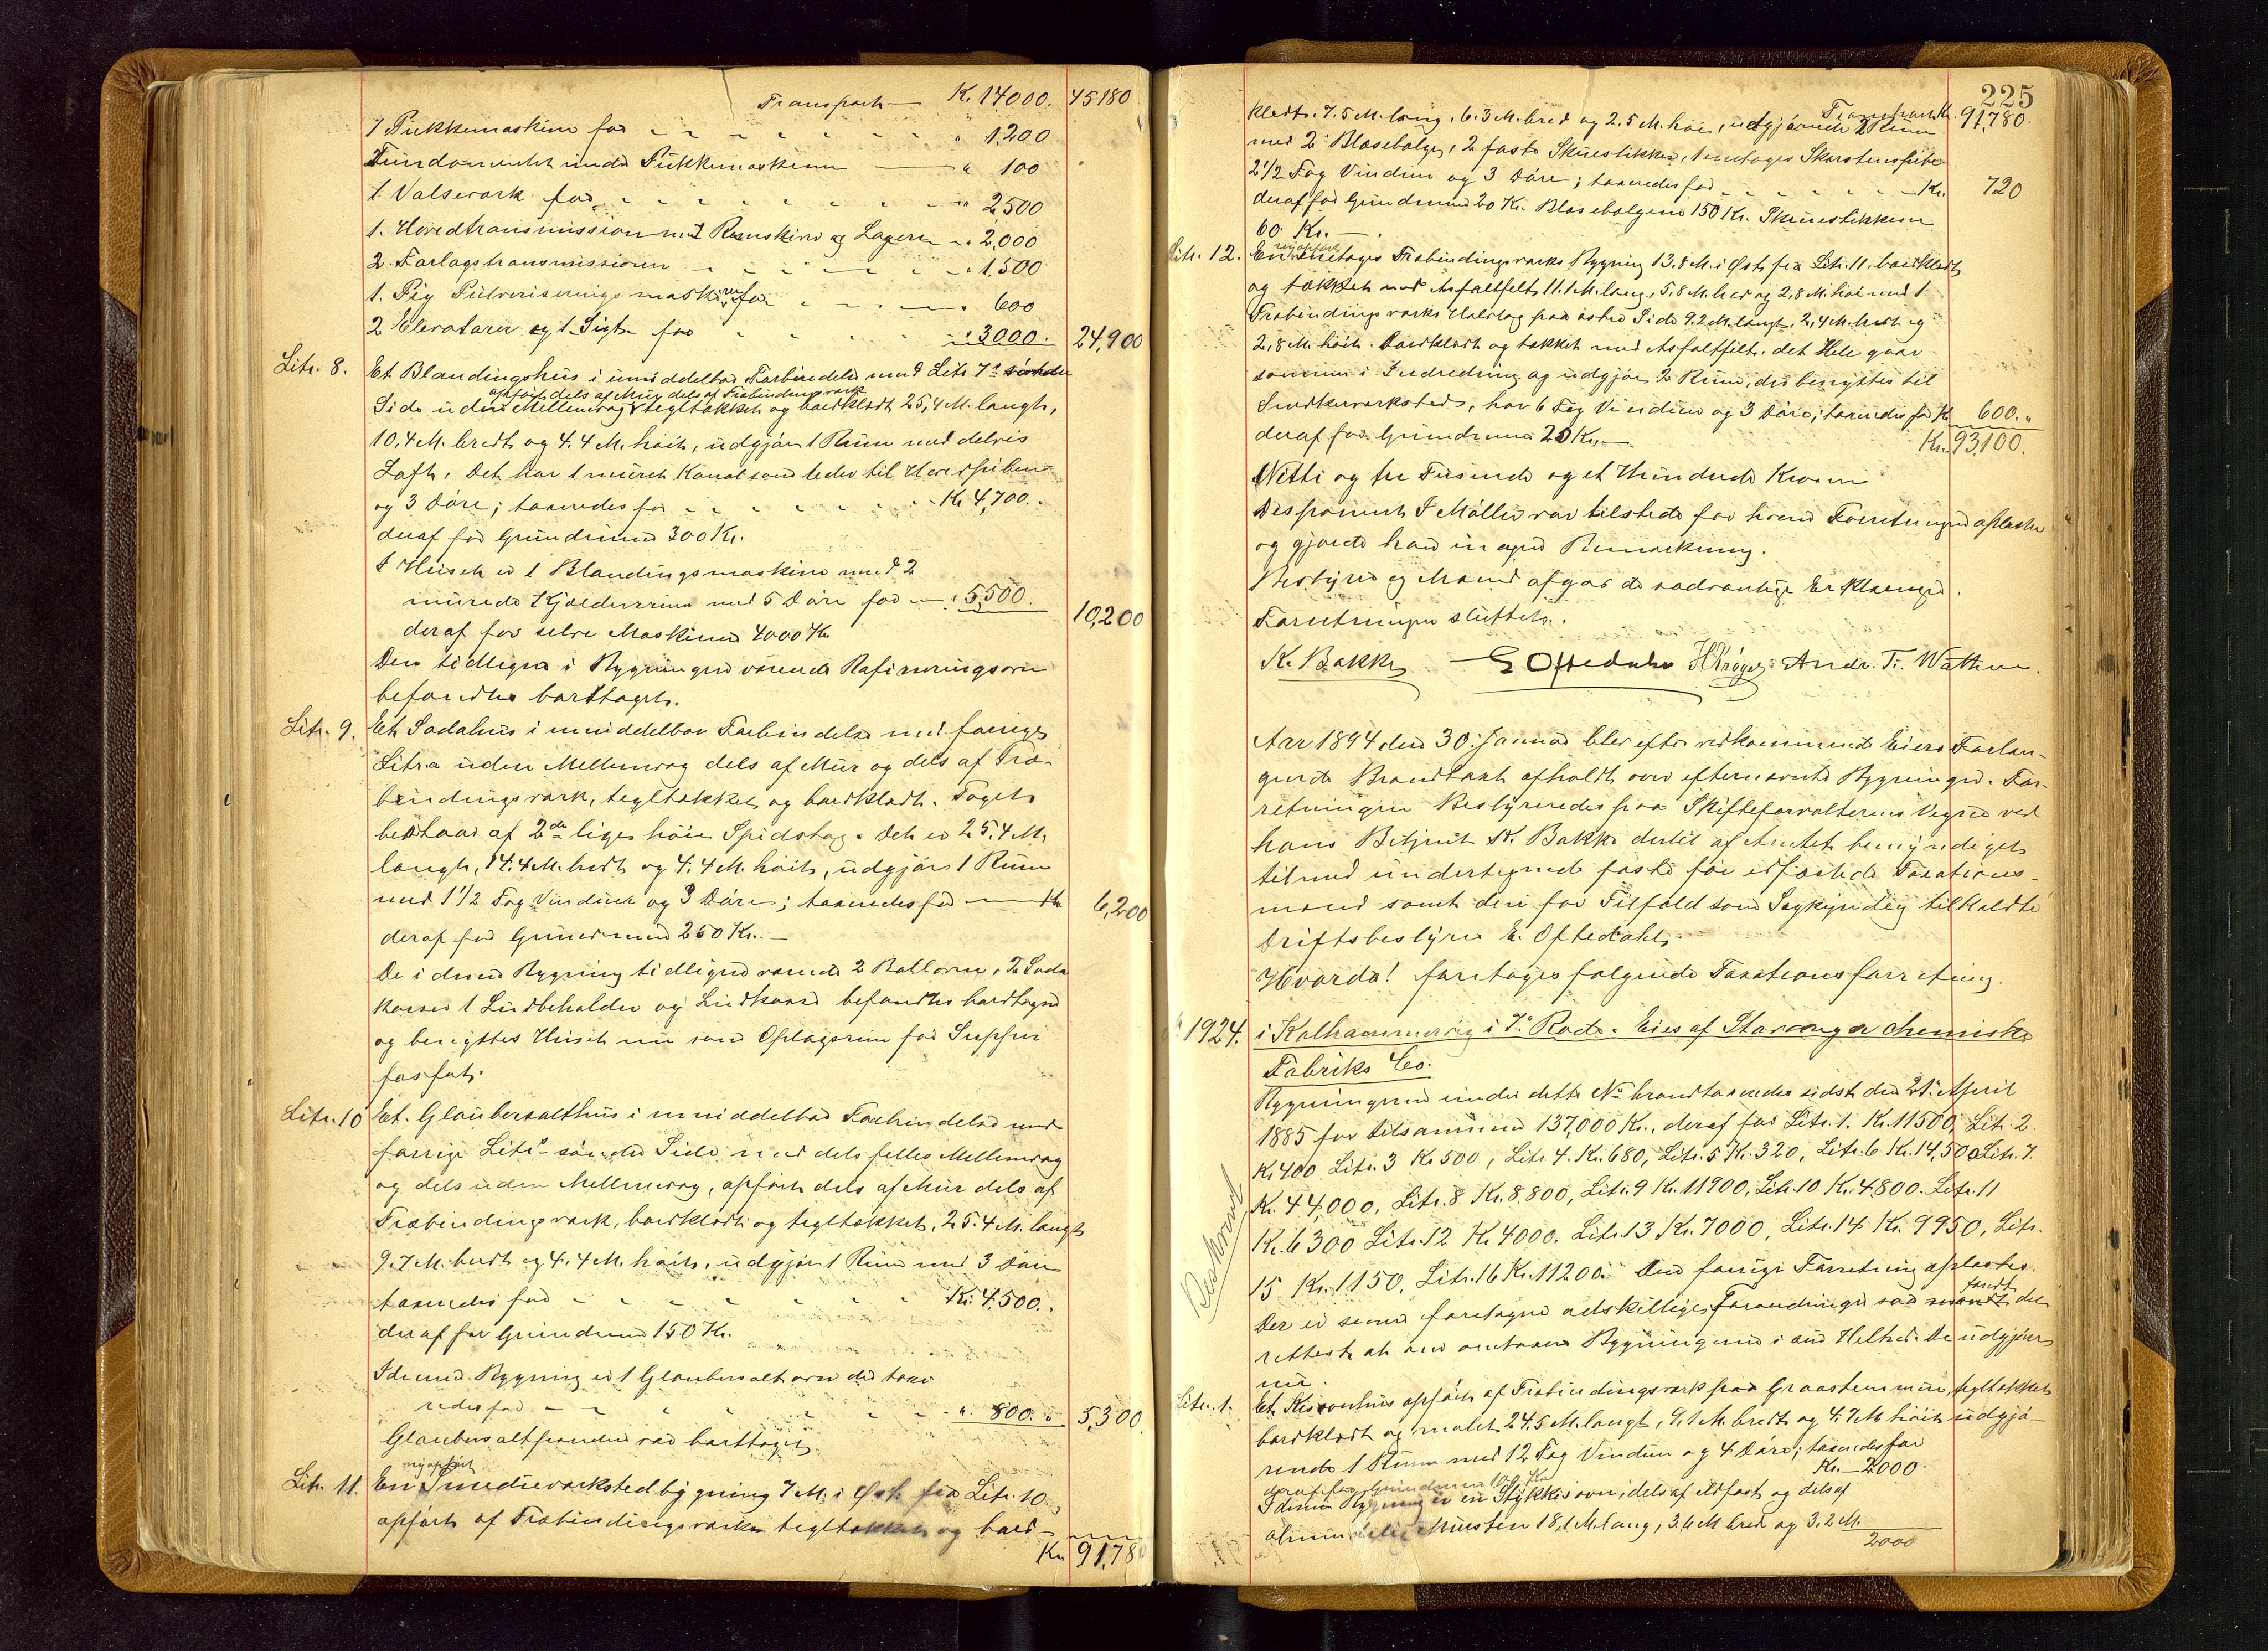 Transport — Kr. 14000. 45180
1 Pukkemaskine for " 1200
Fundamentet under Pukkemaskinen — " 100
1 Valseværk for " 2500
1. Hovedtransmission med Remskive og Lagere — " 2,000
2 Forlagstransmissioner " 1500
1. Pulveriseringsmaskine for " 600
2 Elevatorer og 1 Sigte for " 3000. 24,900
Litr. 8. Et Blandingshus i umiddelbar Forbindelse med Litr. 7s søndre
opført dels af Mur dels af Træbindingsværk
Side uden Mellemvæg tegltækket og bordklædt 25,4 M. langt,
10,4 M. bredt og 4,4 M. høit, udgjør 1 Rum med delvis
Loft. Det har 1 muret Kanal som leder til Hovedpiben
og 3 Døre; taxeredes for Kr. 4,700.
deraf for Grundmuren 300 Kr.
I Huset er 1 Blandingsmaskine med 2
murede Kjælderrum med 5 Døre for — " 5,500. 10,200
deraf for selve Maskinen 4000 Kr
Den tidligere i Bygningen værende Rafineringsovn
befandtes borttaget.
Litr. 9. Et Sodahus i umiddelbar Forbindelse med forrige
Litra uden Mellemvæg dels af Mur og dels af Træ-
bindingsværk, tegltækket og bordklædt. Taget
bestaar af 2de lige høie Spidstag. Det er 25.4 M.
langt, 14.4 M. bredt og 4.4 M. høit, udgjør 1 Rum
med 1 1/2 Fag Vinduer og 3 Døre; taxeredes for — Kr. 6,200
deraf for Grundmuren 250 Kr. —
De i denne Bygning tidligere værende 2 Ballovne, 2 Soda
karrer 1 Ludbeholder og Ludkar befandtes borttagne
og benyttes Huset nu som Oplagsrum for Super
fosfat.
Litr. 10 Et Glaubersalthus i umiddelbar Forbindelse med
forrige Litrs søndre Side med dels fælles Mellemvæg
og dels uden Mellemvæg, opført dels af Mur dels af
Træbindingsværk, bordklædt og tegltækket, 25.4 M. langt
9.7 M. bredt og 4.4 M. høit, udgjør 1 Rum med 3 Døre
taxeredes for Kr. 4,500.
deraf for Grundmuren 150 Kr.
I denne Bygning er 1 Glaubersaltovn der taxe
redes for " 800. 5,300
Glaubersaltpanden var borttaget.
nyopført
Litr. 11. En Smedieværkstedbygning 7 M. i Øst fra Litr. 10,
opført af Træbindingsværk tegltækket og bord-
Kr. 91,780
225
Transport Kr. 91,780.
klædt. 7.5 M. lang, 6.3 M. bred og 2.5 M. høi, udgjørende 2 Rum
med 2 Blæsebælge, 2 faste Skruestikker, 1 enetages Skorstenspibe
2 1/2 Fag Vinduer og 3 Døre; taxeredes for — Kr. 720
deraf for Grundmuren 20 Kr. Blæsebælgene 150 Kr. Skruestikkerne
60 Kr. —
nyopført
Litr. 12. En enetages Træbindingsværks Bygning 13.8 M. i Øst fra Litr. 11, bordklædt
og tækket med Asfaltfilt, 11.1 M. lang, 5,8 M. bred og 2,8 M. høi med 1
Træbindingsværks Halvtag paa østre Side 9.2 M. langt, 2,4 M. bredt og
2,8 M. høit. Bordklædt og tækket med Asfaltfilt, det Hele gaar
sammen i Indredning og udgjør 2 Rum, der benyttes til
Snedkerværksted, har 6 Fag Vinduer og 3 Døre; taxeredes for Kr. 600. "
deraf for Grundmuren 20 Kr. — Kr. 93,100.
Nitti og tre Tusinde og et Hundrede Kroner
Disponent I Møller var tilstede for hvem Forretningen oplæstes
og gjorde han ingen Bemærkning.
Bestyrer og Mænd afgav de sædvanlige Erklæringer.
Forretningen sluttet.
K. Bakke E Oftedahl HKrøger Andr. T. Watne.
Aar 1894 den 30. Januar blev efter vedkommende Eiers Forlan-
gende Brandtaxt afholdt over efternævnte Bygninger. For-
retningen bestyredes paa Skifteforvalterens Vegne ved
hans Betjent K. Bakke dertil af Amtet bemyndiget
tilmed undertegnede faste før edfæstede Taxations-
mænd samt den for Tilfælde som Sagkyndig tilkaldte
Driftsbestyrer E. Oftedahl.
Hvorda! foretoges følgende Taxationsforretning.
1924. i Kalhammervig i 7. Rode. Eies af Stavanger chemiske
Fabriks Co.
Bygningerne under dette No brandtaxeredes sidst den 21. April
1885 for tilsammen 137,000 Kr., deraf for Litr. 1. Kr. 11500, Litr. 2
Kr 400 Litr. 3 Kr 500, Litr. 4. Kr. 680, Litr. 5 Kr. 320, Litr. 6 Kr. 14,500 Litr. 7.
Kr. 44,000, Litr. 8 Kr. 8.800, Litr. 9 Kr. 11900, Litr. 10 Kr. 4,800. Litr. 11
Kr. 6300 Litr. 12 Kr 4000. Litr. 13 Kr. 7000, Litr. 14 Kr. 9950, Litr.
15 Kr. 1150, Litr. 16 Kr. 11200. Den forrige Forretning oplæstes.
Beskrevet
fandt
Der er senere foretagne adskillige Forandringer saa det
retteste at omtaxere Bygningerne i sin Helhed. De udgjør
nu.
Litr. 1. Et Kisovnhus opført af Træbindingsværk paa Graastensmur, tegltækket
bordklædt og malet 24.5 M. langt, 9,1 M. bredt og 4.7 M. høit udgjø-
rende 1 Rum med 12 Fag Vinduer og 4 Døre; taxeredes for
Kr. — 2000.
deraf for Grundmuren 100 Kr
I denne Bygning er en Stykkisovn, dels af ildfast og dels af
almindelig Mursten 18,1 M. lang, 3.4 M bred og 3,2 M.
2000